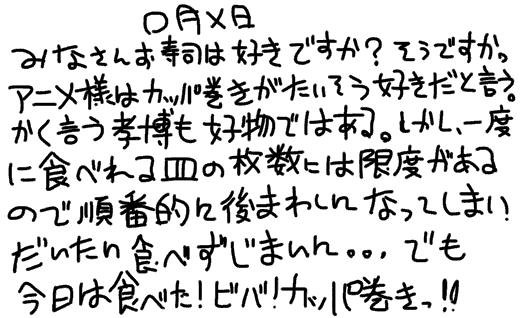 〇月×日
みなさんお寿司は好きですか？そうですか。
アニメ様はカッパ巻きがたいそう好きだと言う。
かく言う孝博も好物ではある。しかし、一度
に食べれる皿の枚数には限度がある
ので順番的に後まわしになってしまい
だいたい食べずじまいに...でも
今日は食べた！ビバ！カッパ巻きっ!!